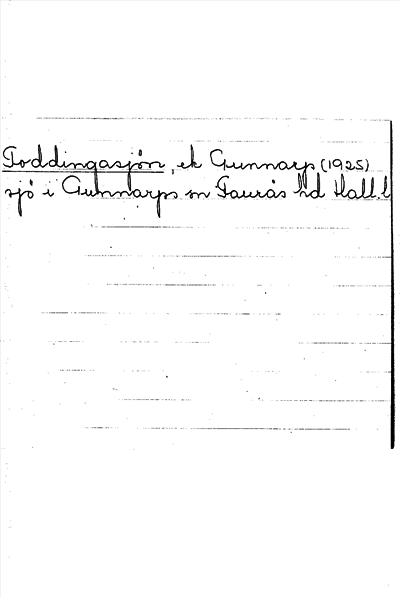 Foddingasjön, ek Gunnarp (1925)
sjö i Gunnarps sn Faurås hd Hall. l